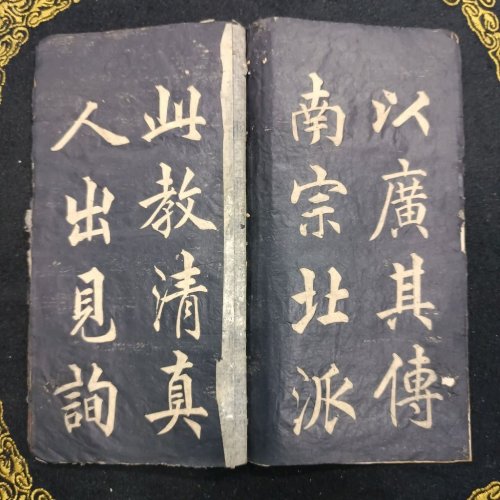 以廣其傳
南宗北派
此教清真
人出見詢